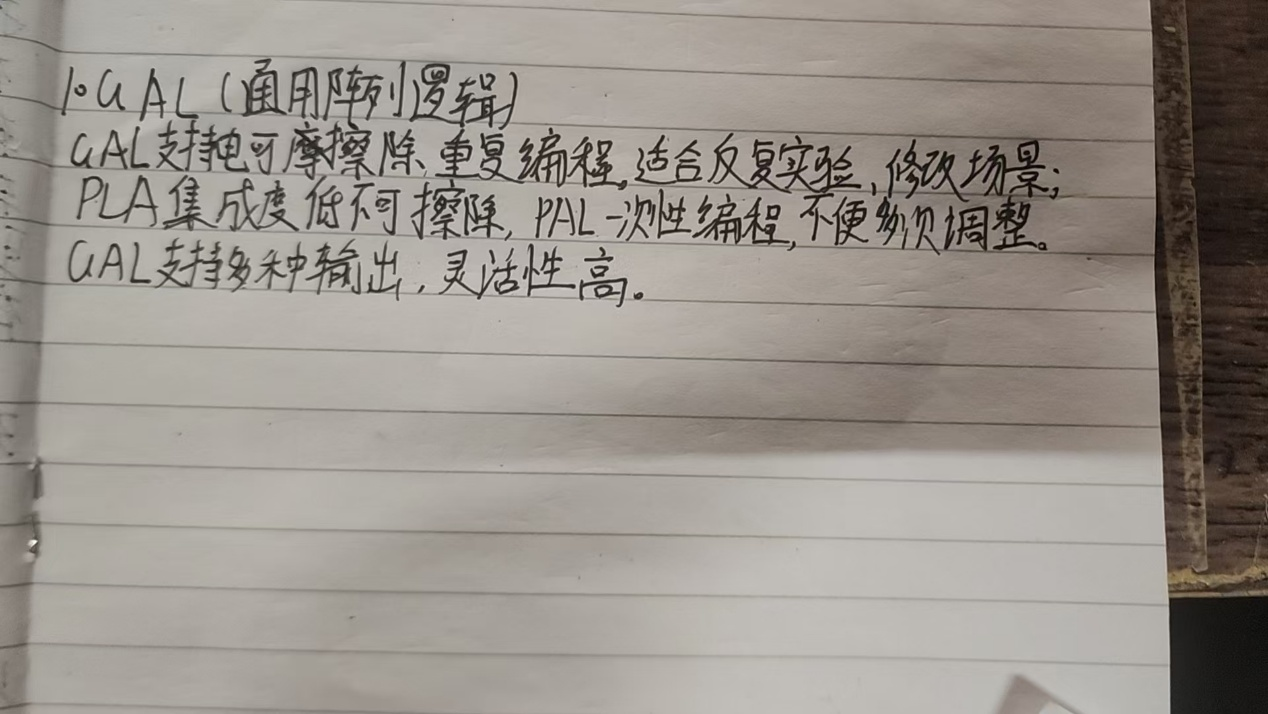 1.GAL(通用阵列逻辑)
GAL支持电可摩擦除、重复编程,适合反复实验、修改场景;
PLA集成度低不可擦除,PAL一次性编程,不便多次调整。
GAL支持多种输出,灵活性高。